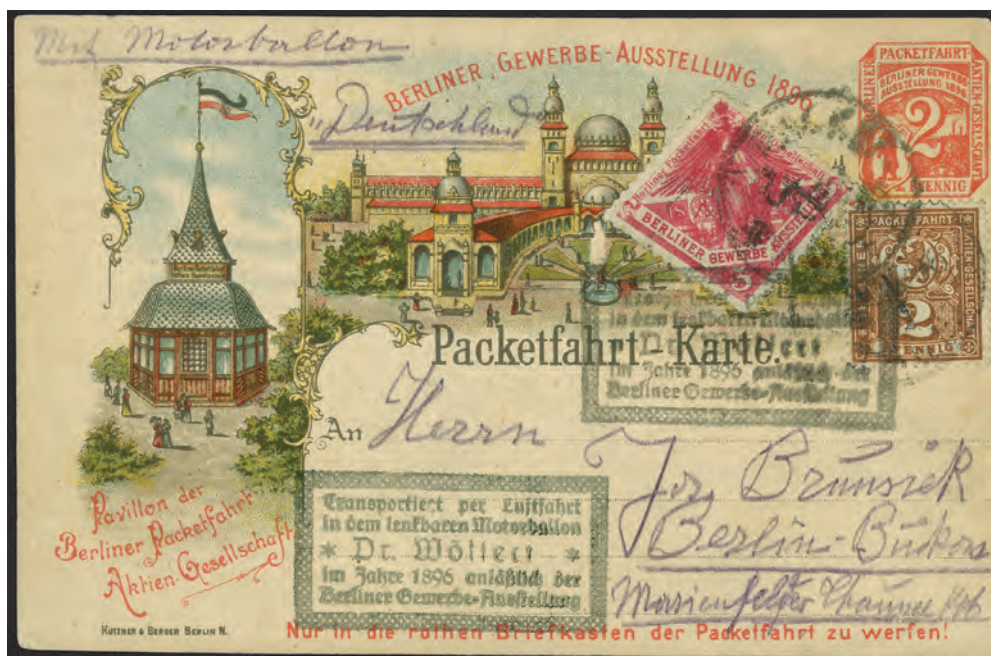 Mit Motorballon
"Deutschland"
BERLINER GEWERBE-AUSSTELLUNG 1896
BERLINER PACKETFAHRT AKTIEN-GESELLSCHAFT
BERLINER GEWERBE
AUSSTELLUNG 1896
2
PFENNIG
Berliner Packetfahrt
BERLINER GEWERBE AUSSTELLUNG
3
PACKETFAHRT-
AKTIEN-GESELLSCHAFT
2
PFENNIG
in dem lenkbaren Motorballon
im Jahre 1896 anläßlich der
Berliner Gewerbe-Ausstellung
Packetfahrt-Karte.
An Herrn
Brunsiek
Berlin-
Marienfelder
Transportiert per Luftfahrt
in dem lenkbaren Motorballon
* Dr. Wölfert *
im Jahre 1896 anläßlich der
Berliner Gewerbe-Ausstellung
Pavillon der
Berliner Packetfahrt
Aktien-Gesellschaft
KUTZNER & BERGER BERLIN N.
Nur in die rothen Briefkasten der Packetfahrt zu werfen!